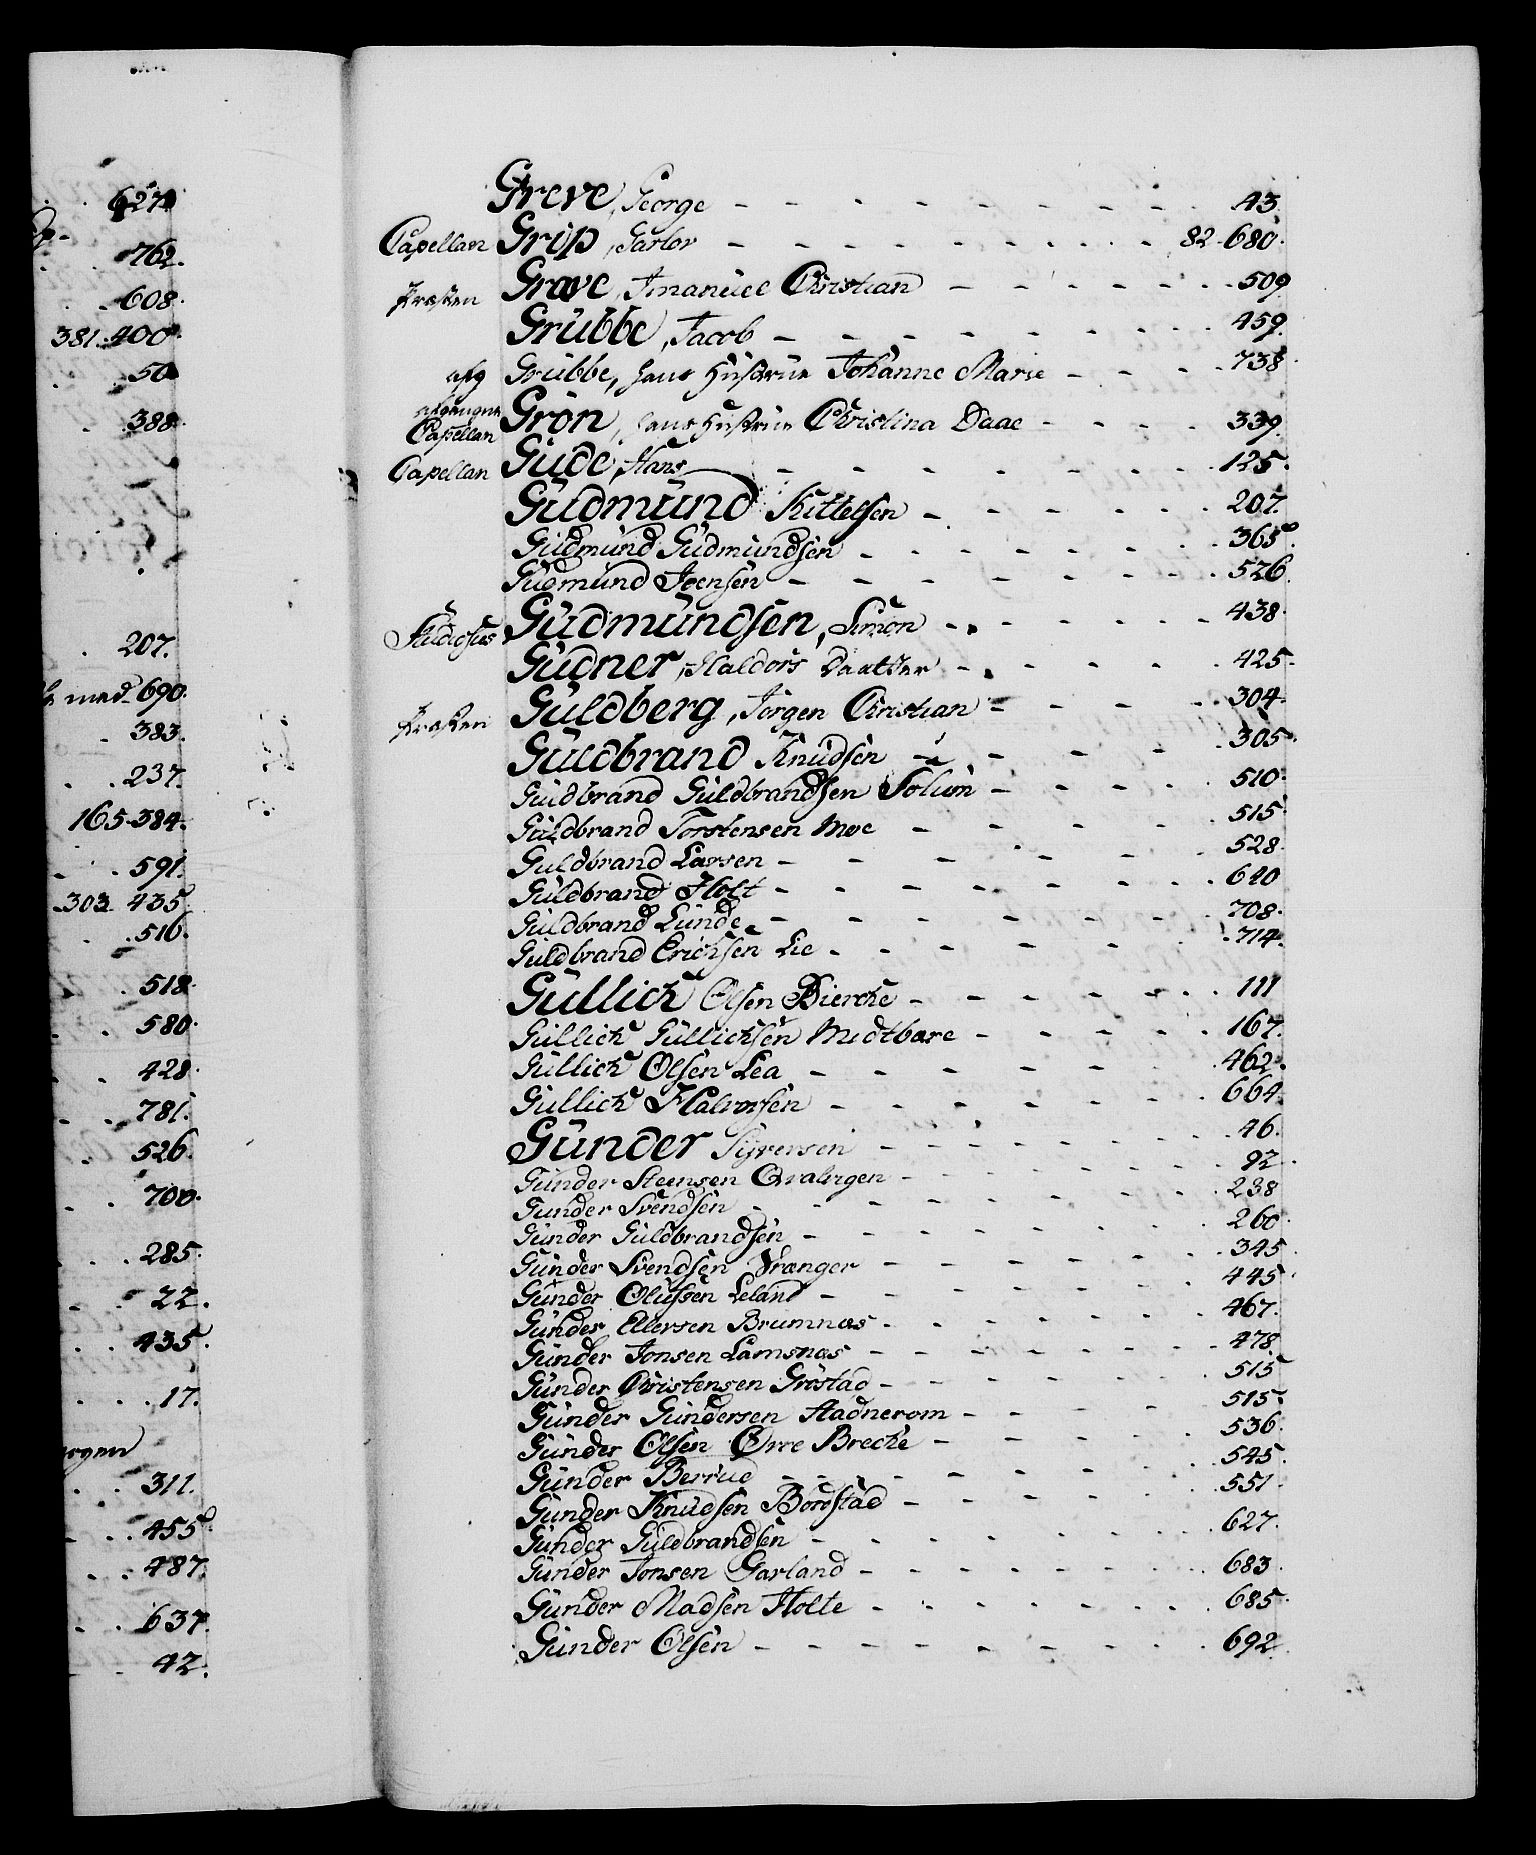 627
762.
608.
381. 400.
50
388.
207.
med 690.
383.
237.
165. 384.
591.
303. 435.
516.
518.
580.
428.
781.
526.
700.
285.
22.
435.
17.
311.
455.
487.
637.
42.
Greve, George - - - 43.
Capellan Grip, Garlov - - - 82. 680.
Præsten Grave, Imanuel Christian - - - 509
Grübbe, Jacob - - - 459.
afg Grübbe, hans Hüstrüe Johanne Marie - - - 738.
afgangne
Capellan Grön, hans Hüstrüe Christina Daae - - - 339.
Capellan Güde, Hans - - - 125.
Güdmünd Kittelsen - - - 207.
Güdmünd Güdmündsen - - - 365.
Güdmünd Joensen - - - 526.
Stüdiosus Güdmündsen, Simon - - - 438.
Güdner, Haldors Daatter - - - 425.
Præsten Güldberg, Jörgen Christian - - - 304.
Güldbrand Knüdsen - - - 305.
Güldbrand Güldbrandsen Solüm - - - 510.
Güldbrand Torstensen Moe - - - 515.
Güldbrand Larsen - - - 528.
Güldbrand Holt - - - 640
Güldbrand Lünde - - - 708.
Güldbrand Erichsen Lie - - - 714.
Güllich Olsen Bierche - - - 111
Güllich Güllichsen Midtbøre - - - 167.
Güllich Olsen Lea - - - 462.
Güllich Halvorsen - - - 664.
Günder Syversen - - - 46.
Günder Steensen Qvalvigen - - - 92.
Günder Svendsen - - - 238
Günder Güldbrandsen - - - 260.
Günder Svendsen Vranger - - - 345.
Günder Olüfsen Leland - - - 445.
Günder Ellersen Brumnæs - - - 467.
Günder Jonsen Lamsnæs - - - 478
Günder Christensen Gröstad - - - 515
Günder Gündersen Stadnerom - - - 515.
Günder Olsen Øvre Breche - - - 536.
Günder Berrüd - - - 545.
Günder Knüdsen Bordstad - - - 551.
Günder Güldbrandsen - - - 627.
Günder Jonsen Garland - - - 683.
Günder Madsen Holte - - - 685.
Günder Olsen - - - 692.